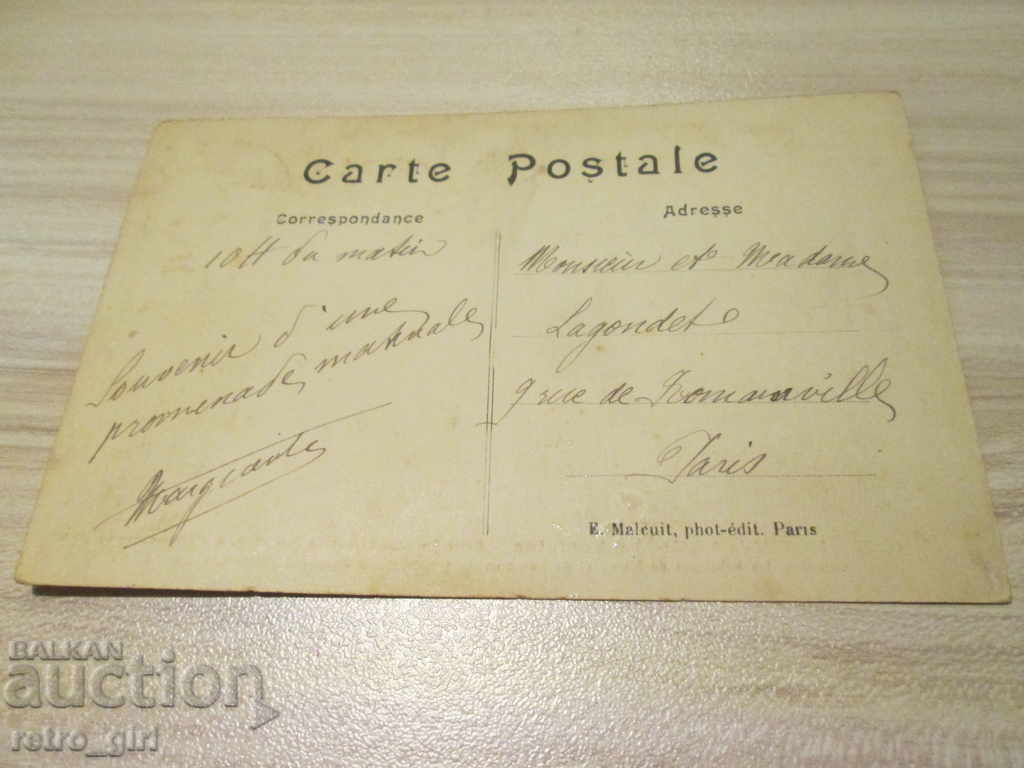 Carte Postale
Correspondance
10 H du matin
Souvenir d'une
promenade matinale
Adresse
Monsieur et Madame
Lagondet
9 rue de Romainville
Paris
E. Malcuit, phot-édit. Paris
BALKAN
auction
retro_girl